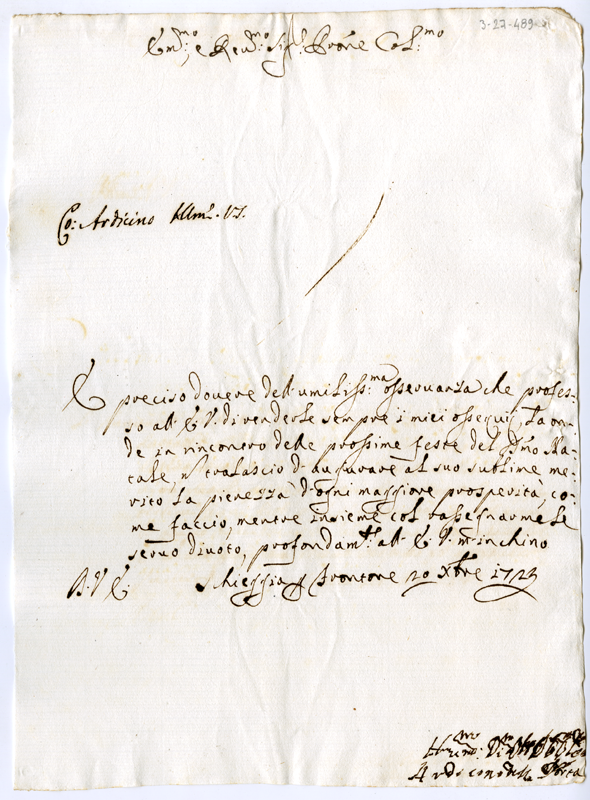 3-27-489
Em.mo e Reu.mo Sig.r Prone Col.mo
Co: Ardicino
È preciso douere dell'umiliss.ma osseruanza che profes-
so all'E.V. di renderle sempre i miei ossequij, la on-
de in rincontro delle prossime feste del S.mo Na-
tale, n tralascio d'augurare al suo sublime me-
rito la pienezza d'ogni maggiore prosperità, co-
me faccio, mentre insieme col rassegnarmele
seruo diuoto, profondam.te all'E.V. m'inchino
D.V.E. Schieggia p Frontone 20 Xbre 1723